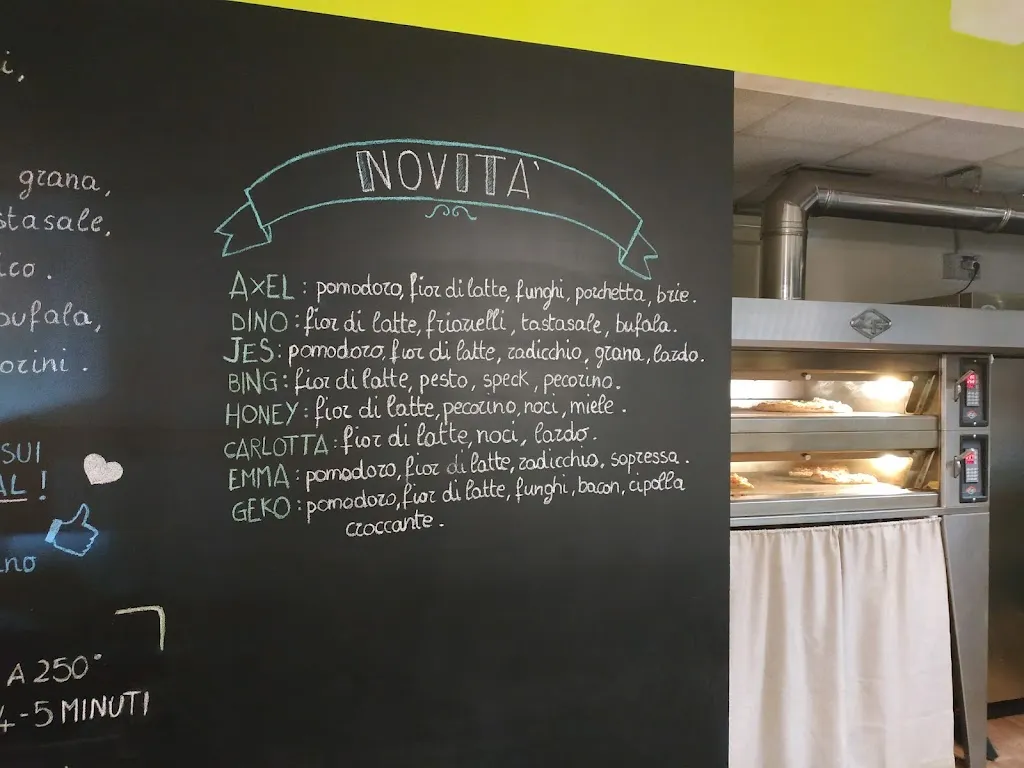 i,
grana,
stasale,
ico.
bufala,
orini.
SUI
AL!
no
A 250°
4-5 MINUTI
NOVITA`
AXEL: pomodoro, fior di latte, funghi, porchetta, brie.
DINO: fior di latte, friarielli, tastasale, bufala.
JES: pomodoro, fior di latte, radicchio, grana, lardo.
BING: fior di latte, pesto, speck, pecorino.
HONEY: fior di latte, pecorino, noci, miele.
CARLOTTA: fior di latte, noci, lardo.
EMMA: pomodoro, fior di latte, radicchio, sopressa.
GEKO: pomodoro, fior di latte, funghi, bacon, cipolla
croccante.